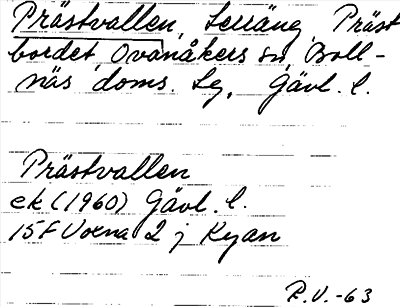 Prästvallen, terräng, Präst
bordet Ovanåkers sn, Boll-
näs doms. lg, Gävl. l.
Prästvallen
ek (1960) Gävl. l.
15F Voxna 2 j Ryan
R.V.-63